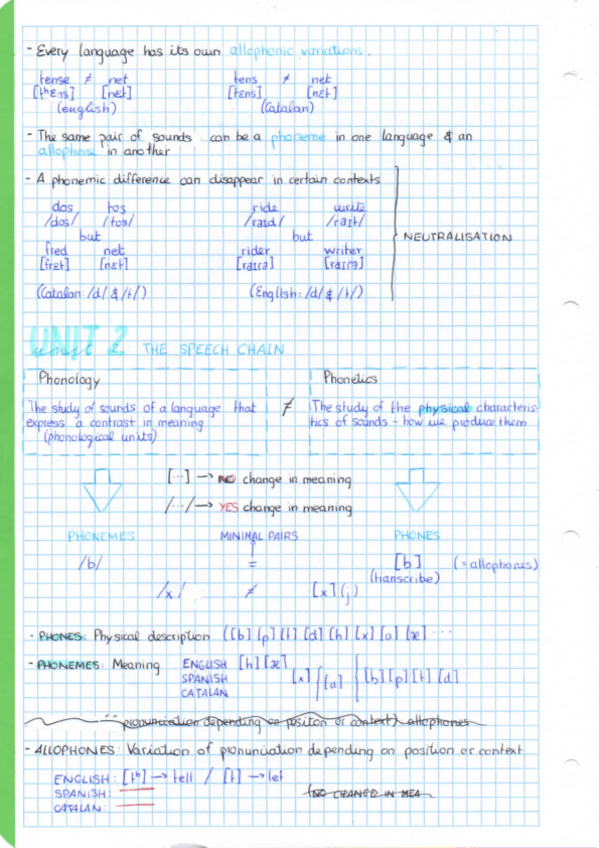 - Every language has its own allophonic variations.
tense ≠ net    tens ≠ net
[tʰɛns] [nɛt]    [tɛns] [nɛt]
(english)    (Catalan)
- The same pair of sounds can be a phoneme in one language & an
allophone in another
- A phonemic difference can disappear in certain contexts
dos tos    ride write
/dos/ /tos/    /raɪd/ /raɪt/
but    but    NEUTRALISATION
fred net    rider writer
[frɛt] [nɛt]    [raɪɾə] [raɪɾə]
(Catalan: /d/ & /t/)    (English: /d/ & /t/)
UNIT 2 THE SPEECH CHAIN
Phonology    Phonetics
The study of sounds of a language that ≠ The study of the physical characteris-
express a contrast in meaning    tics of sounds - how we produce them
(phonological units)
[...] → NO change in meaning
/.../ → YES change in meaning
PHONEMES    MINIMAL PAIRS    PHONES
/b/    =    [b] (= allophones)
(transcribe)
/x/    ≠    [x] (j)
- PHONES: Physical description ([b] [p] [t] [d] [h] [x] [a] [æ] ...
- PHONEMES: Meaning    ENGLISH [h] [æ]
SPANISH    [x] [a] [b] [p] [t] [d]
CATALAN
pronunciation depending on positon or context) allophones
- ALLOPHONES: Variation of pronunciation depending on position or context
ENGLISH: [tʰ] → tell / [t] → let
SPANISH:    (NO CHANGED IN MEA
CATALAN: